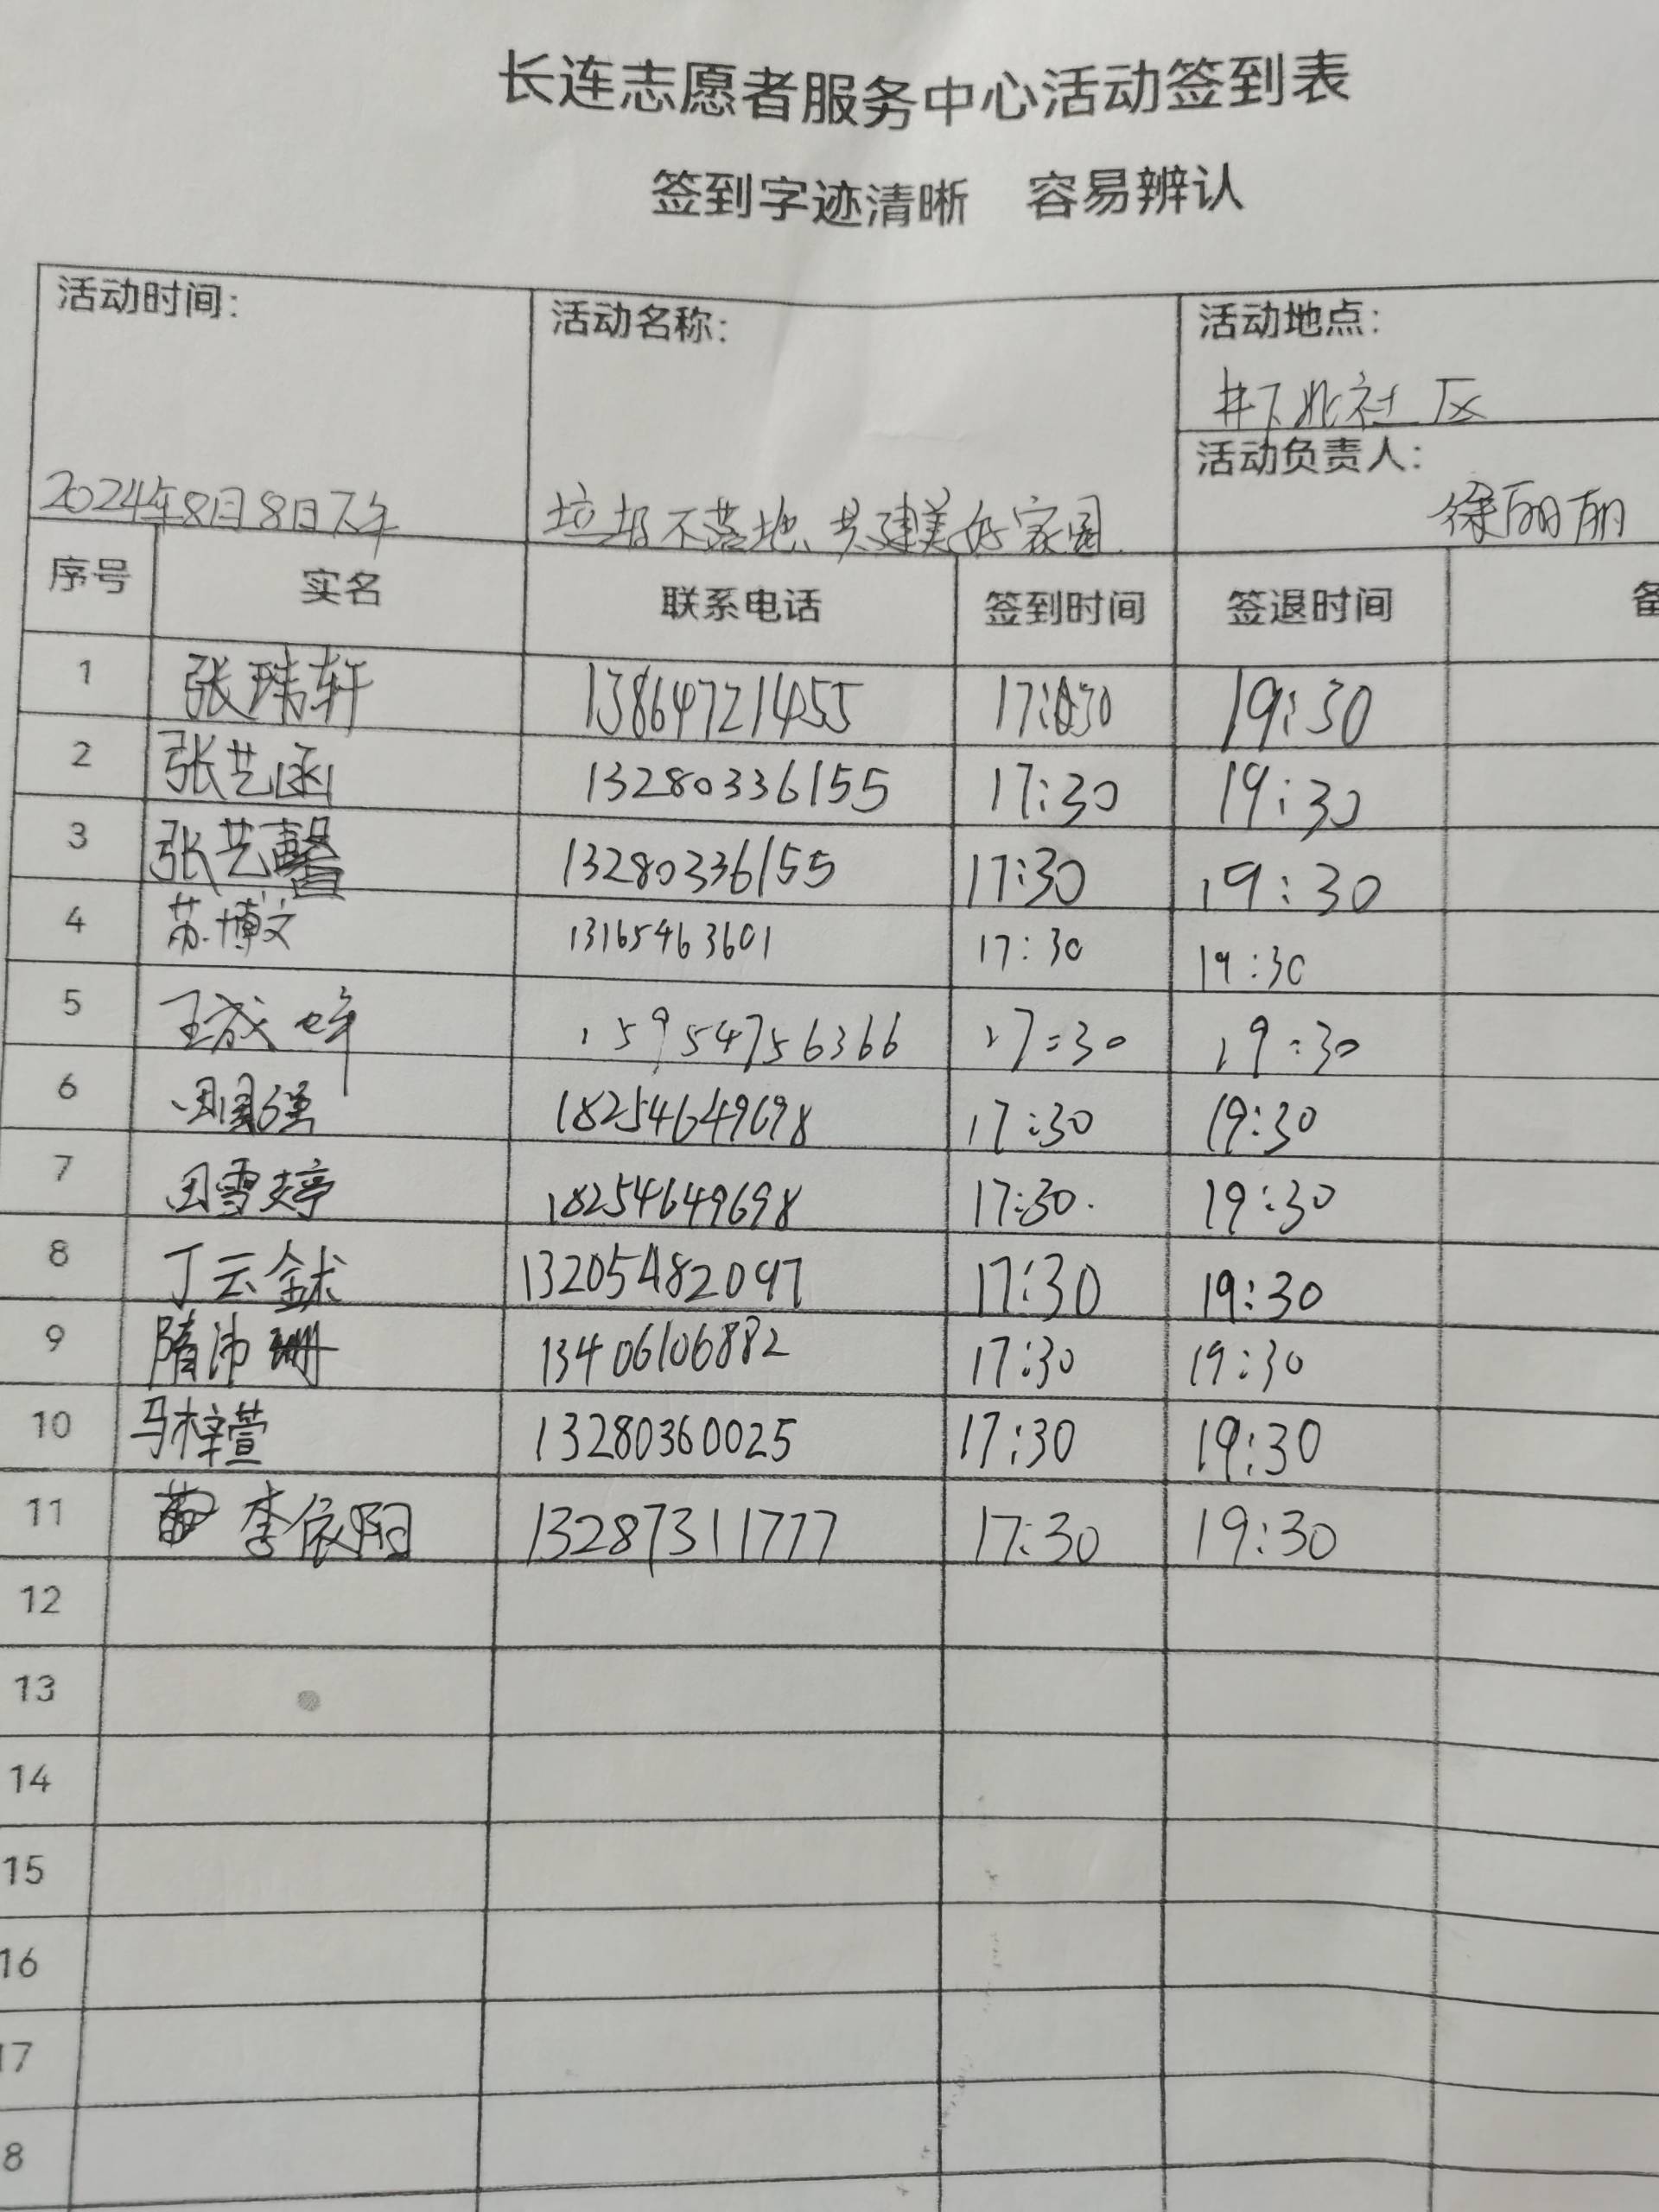 长连志愿者服务中心活动签到表
签到字迹清晰 容易辨认
活动时间： 活动名称： 活动地点：
井下北社区
活动负责人：
2024年8月8日下午 垃圾不落地、共建美好家园 徐丽丽
序号 实名 联系电话 签到时间 签退时间 备
1 张玮轩 13864721455 17:30 19:30
2 张艺函 13280336155 17:30 19:30
3 张艺馨 13280336155 17:30 19:30
4 苏博文 13165463601 17:30 19:30
5 王成 15954756366 17:30 19:30
6 田国强 18254649698 17:30 19:30
7 田雪婷 18254649698 17:30 19:30
8 丁云 13205482097 17:30 19:30
9 隋沛珊 13406106882 17:30 19:30
10 马梓萱 13280360025 17:30 19:30
11 李依阳 13287311777 17:30 19:30
12
13
14
15
16
17
8